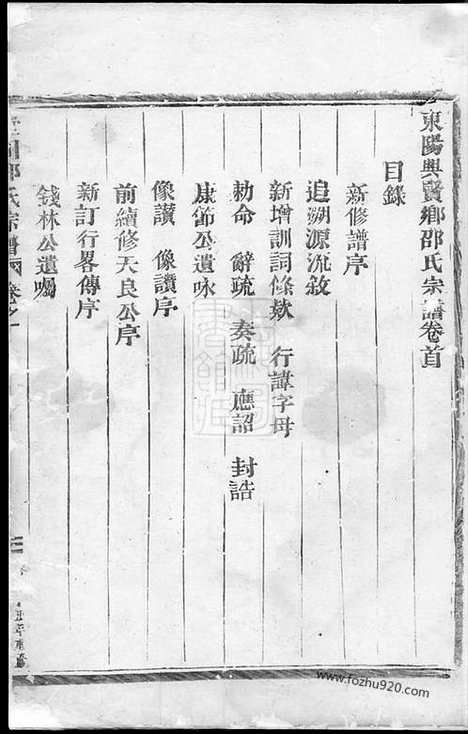 東陽興賢鄉邵氏宗譜卷首
目錄
新修譜序
追溯源流敘
新增訓詞條欵 行諱字母
勅命 辭疏 奏疏 應詔 封誥
康節公遺咏
像讚 像讚序
前續修天良公序
新訂行畧傳序
錢林公遺囑
氏宗譜
www.fozhu920.com